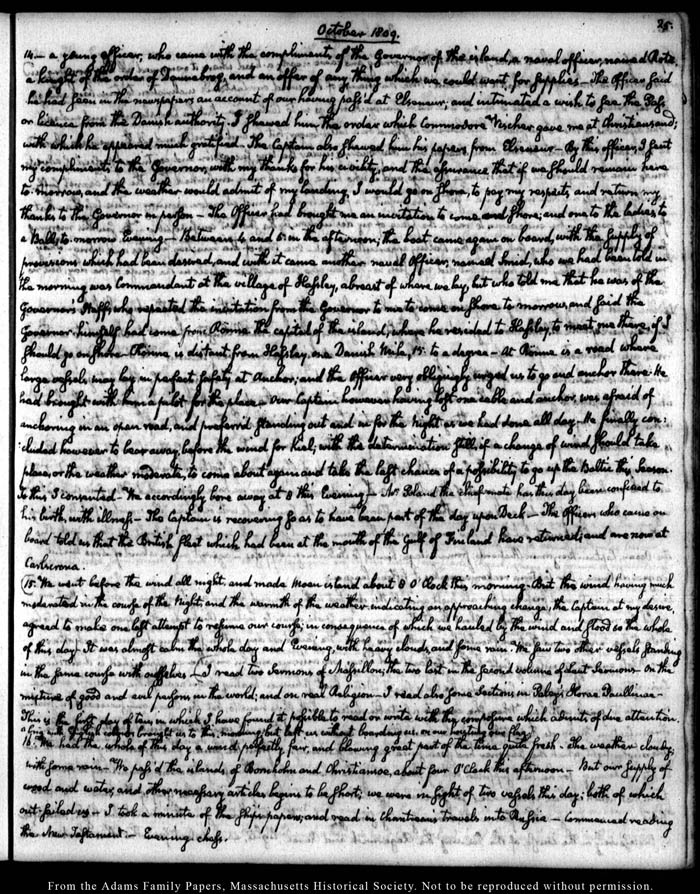 October 1809.
25.
14.— a young officer, who came with the compliments of the Governor of the island, a naval officer, named Rotz,
a knight of the order of Dannebrog, and an offer of any thing which we could want, for supplies— The Officer said
he had seen in the newspapers an account of our having pass'd at Elseneur; and intimated a wish to see the Pass
or licence from the Danish authority. I shewed him the order which Commodore gave me at Christiansand;
with which he appeared much gratified— The Captain also shewed him his papers from Elseneur— By this officer, I sent
my compliments to the Governor, with my thanks for his civility, and the assurance that if we should remain here
to-morrow, and the weather would admit of my landing, I would go on shore, to pay my respects, and return my
thanks to the Governor in person— The Officer had brought me an invitation to come on shore; and one to the ladies to
a Ball, to-morrow Evening— Between 4 and 5 in the afternoon, the boat came again on board, with the supply of
provisions which had been desired, and with it came another naval Officer, named Smid, who we had been told in
the morning was Commandant at the village of Hasley, abreast of where we lay, but who told me that he was of the
Governors Staff; who repeated the invitation from the Governor to me to come on shore to-morrow, and said the
Governor himself had come from Rönne the capital of the island, where he resided to Hasley, to meet me there, if I
should go on shore— Rönne is distant from Hasley, one Danish mile, 15. to a degree— At Rönne is a road where
large vessels may lay in perfect safety at Anchor; and the Officer very obligingly urged us to go and anchor there. He
had brought with him a pilot for the place— Our Captain however having lost one cable and anchor, was afraid of
anchoring in an open road, and preferr'd standing out and in for the Night as we had done all day. He finally con-
cluded however to bear away, before the wind for Kiel; with the determination still, if a change of wind should take
place, or the weather moderate, to come about again and take the last chance of a possibility to go up the Baltic this Season.
To this I consented— We accordingly bore away at 8 this Evening— Mr Poland the chief mate has this day been confined to
his birth, with illness— The Captain is recovering so as to have been part of the day upon Deck— The Officer who came on
board told us that the British fleet which had been at the mouth of the Gulf of Finland have returned; and are now at
Carlscrona.
15. We went before the wind all night, and made Moen island about 8 O'Clock this morning— But the wind having much
moderated in the course of the Night, and the warmth of the weather indicating an approaching change, the Captain at my desire,
agreed to make one last attempt to resume our course; in consequence of which we hauled by the wind and stood so the whole
of this day— It was almost calm the whole day and Evening, with heavy clouds, and some rain— We saw two other vessels standing
in the same course with ourselves— I read two Sermons of Massillon; the two last in the second volume of Lent Sermons— On the
mixture of good and evil persons in the world; and on real Religion— I read also some Sections in Paley's Horae Paulinae—
This is the first day of ten, in which I have found it possible to read or write with the composure which admits of due attention.
a brig with English colors brought us to this morning, but left us without boarding us, on our hoisting our flag
16. We had the whole of this day a wind perfectly fair, and blowing great part of the time quite fresh— The weather cloudy,
with some rain— We pass'd the islands of Bornholm and Christiansoe, about four O'Clock this afternoon— But our supply of
wood and water, and other necessary articles begins to be short; we were in sight of two vessels this day; both of which
out-sailed us— I took a minute of the ships papers; and read in Chantreau's travels into Russia— Commenced reading
the New Testament— Evening chess.
From the Adams Family Papers, Massachusetts Historical Society. Not to be reproduced without permission.